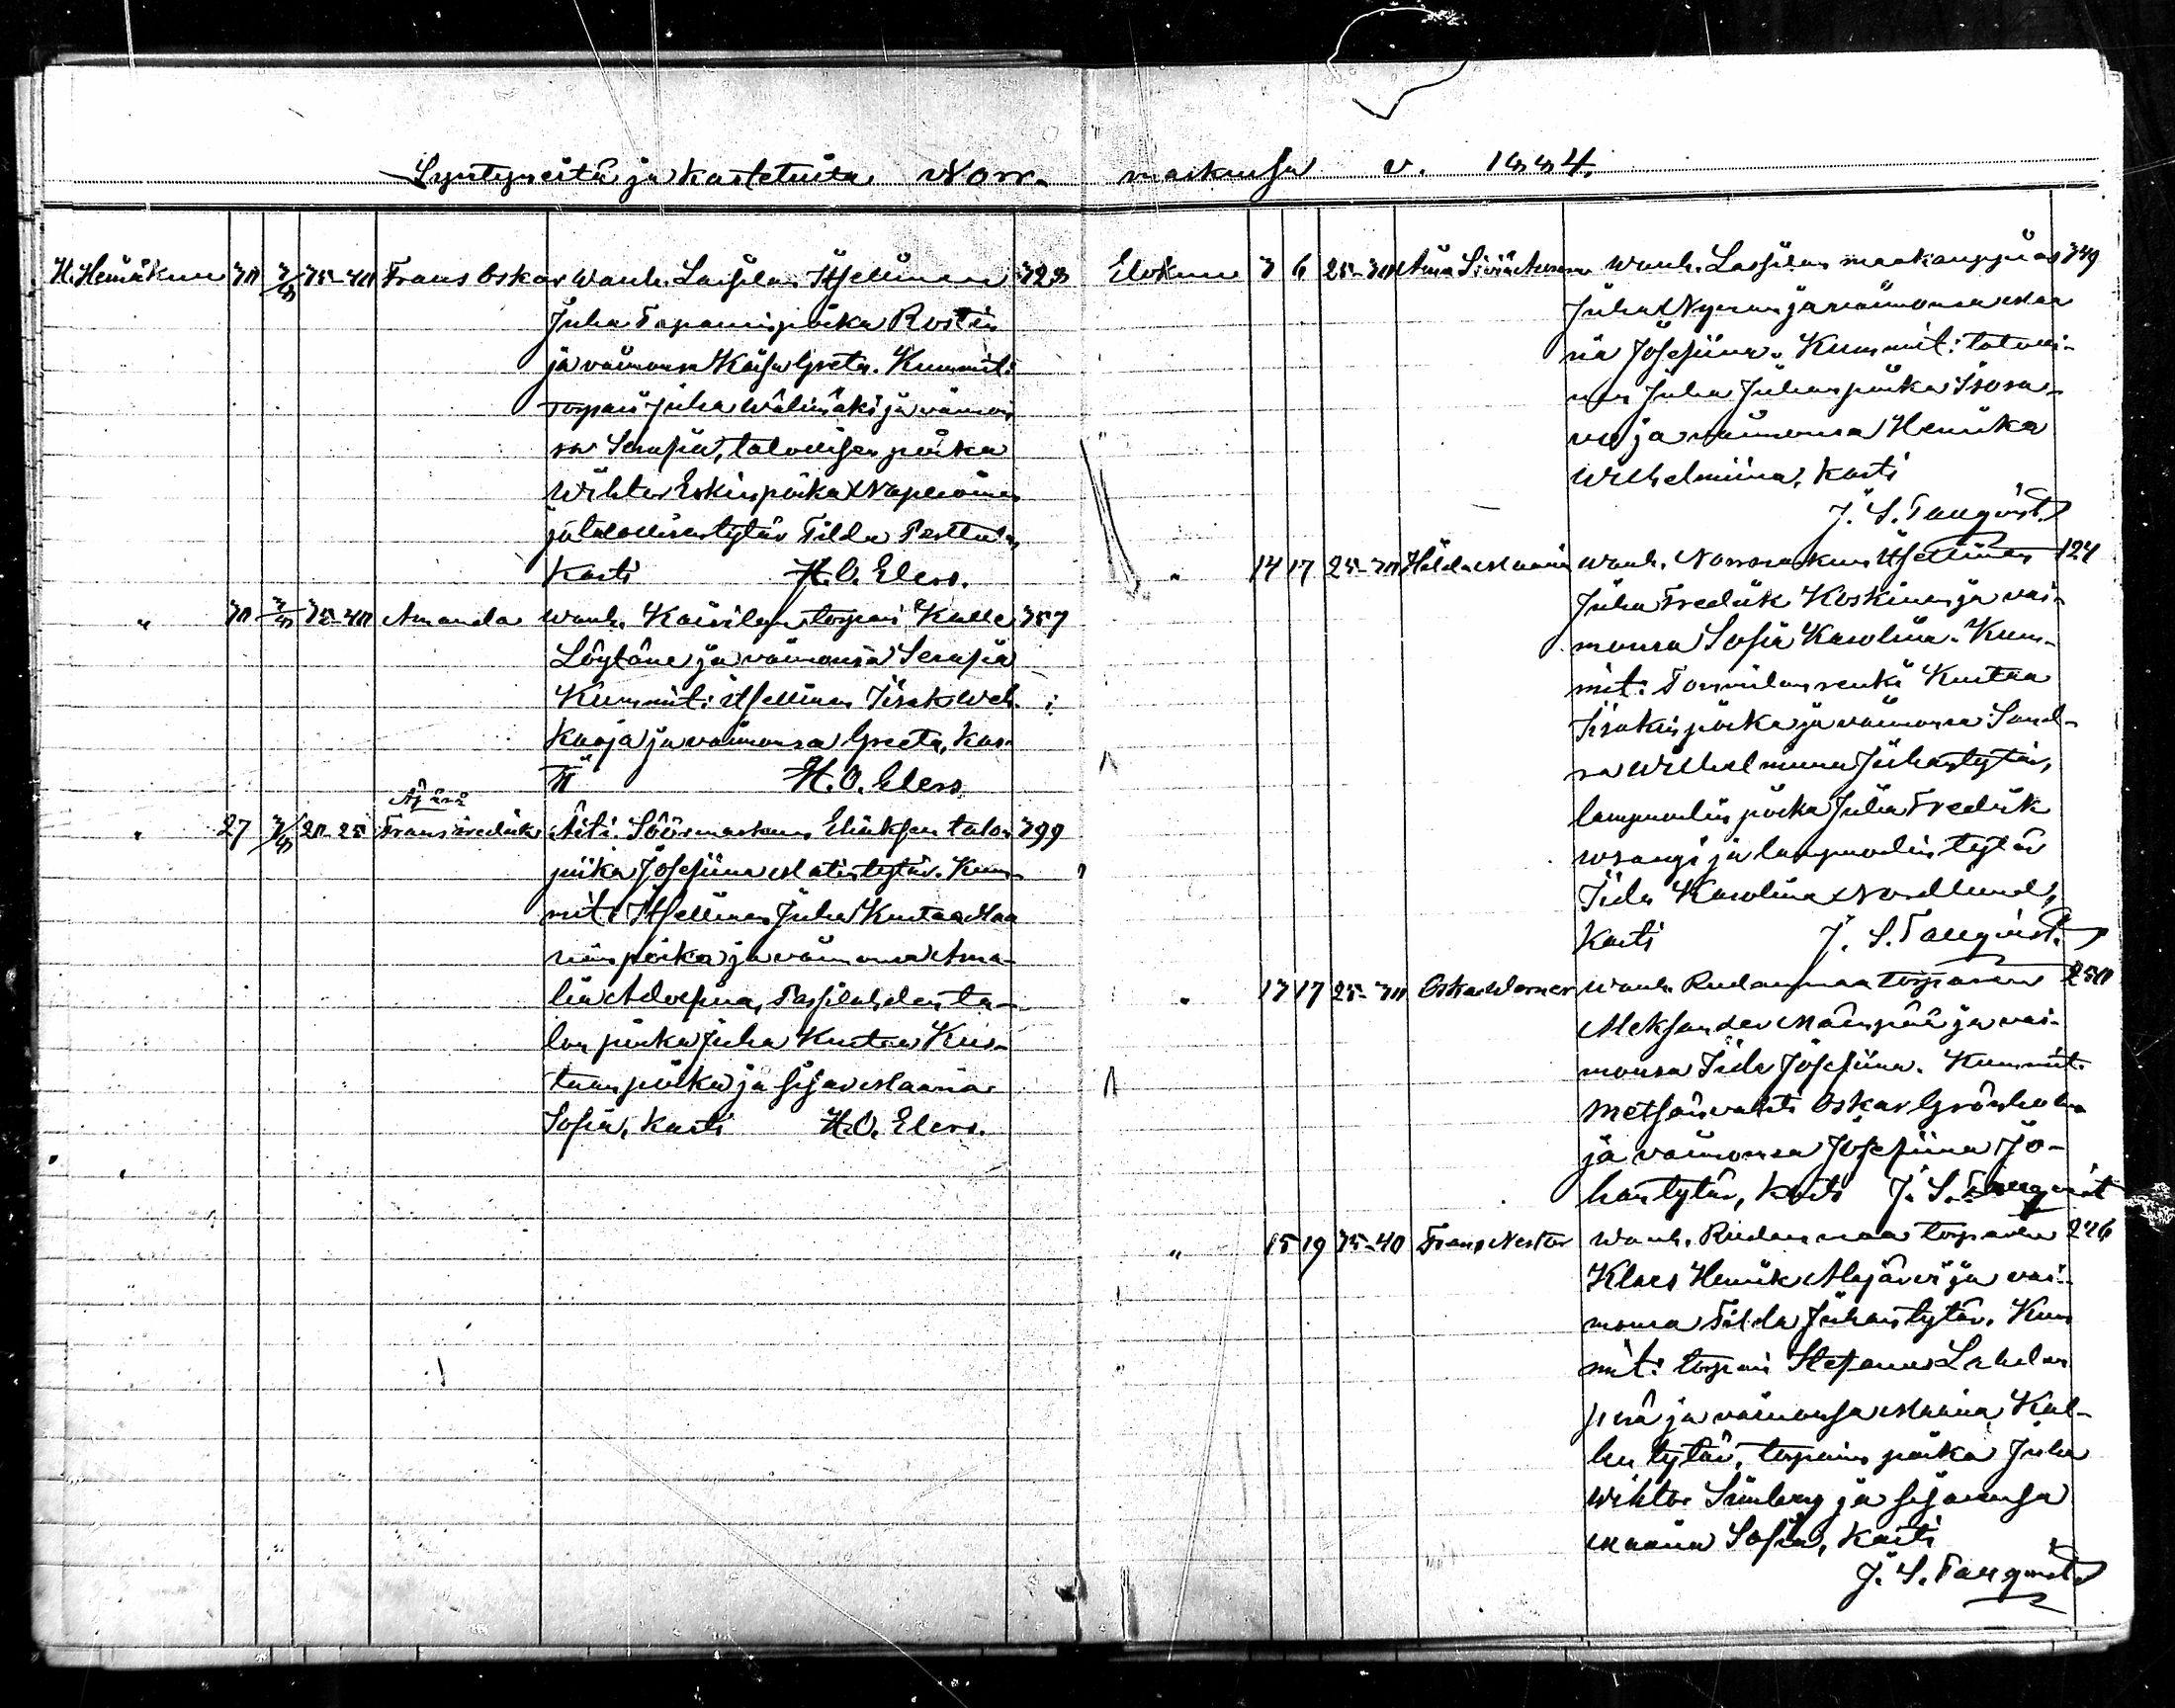 Syntyneitä ja kastetuita Norr-
markussa v. 1884.
H. Heinäkuu 30 3/8 35-40 Frans Oskar Wanh. Lassilan Itsellinen 323
Juha Tapaninpoika Rostin
ja vaimonsa Kaisa Greta. Kummit:
torpari Juha Wälimäki ja vaimon
sa Serafia, talollisen poika
Wihtor Eskinpoika
ja talollisen tytär Tilda Perttula,
Kasti H. O. Elers.
" 30 3/8 35-40 Amanda Wanh. Kairilan torpari Kalle 357
Löytäne ja vaimonsa Serafia
Kummit: itsellinen Iisak Weh-
kaoja ja vaimonsa Greeta, Kas-
ti H. O. Elers
Äpärä
" 27 3/8 20-25 Frans Fredrik Äiti: Söörmarkun Eliuksen talon 399
piika Josefiina Matintytär. Kum-
mit: Itsellinen Juha Kustaa Maa
rianpoika ja vaimonsa Ama-
lia Adolfina, Tassilahden ta-
lon poika Juha Kustaa Kus-
taanpoika ja sisar Maaria
Sofia, Kasti H. O. Elers.
Elokuu 3 6 25-30 Wanh. Lassilan maakauppias 349
Juha Nyman ja vaimonsa Maa
ria Josefiina. Kummit: talolli-
nen Juha Juhanpoika Isosa-
vi ja vaimonsa Henrika
Wilhelmiina, Kasti
J. S. Tallqvist
" 14 17 25-30 Hilda Maaria Wanh. Norrmarkun Itsellinen 124
Juha Fredrik Koskinen ja vai-
monsa Sofia Karolina. Kum-
mit: Tommilan renki Kustaa
Iisakinpoika ja vaimonsa Sand-
ra Wilhelmiina Juhantytär,
lampuodin poika Juha Fredrik
Wrangi ja lampuodin tytär
Iida Karolina Nordlund,
Kasti J. S. Tallqvist.
" 13 17 25-30 Oskar Werner Wanh. Rudanmaa torpparin 250
Aleksander Mäenpää ja vai-
monsa Iida Josefiina. Kummit:
Metsänvahti Oskar Grönholm
ja vaimonsa Josefiina Jo-
hantytär, Kasti J. S. Tallqvist
" 15 19 35-40 Frans Nestor Wanh. Rudanmaa torpparin 246
Klaes Henrik Alajärvi ja vai-
monsa Tilda Juhantytär. Kum
mit: torpari Stefanus Lahden
perä ja vaimonsa Maria Kal-
len tytär, torparin poika Juha
Wihtor Sunberg ja sisarensa
Maaria Sofia, Kasti
J. S. Tallqvist